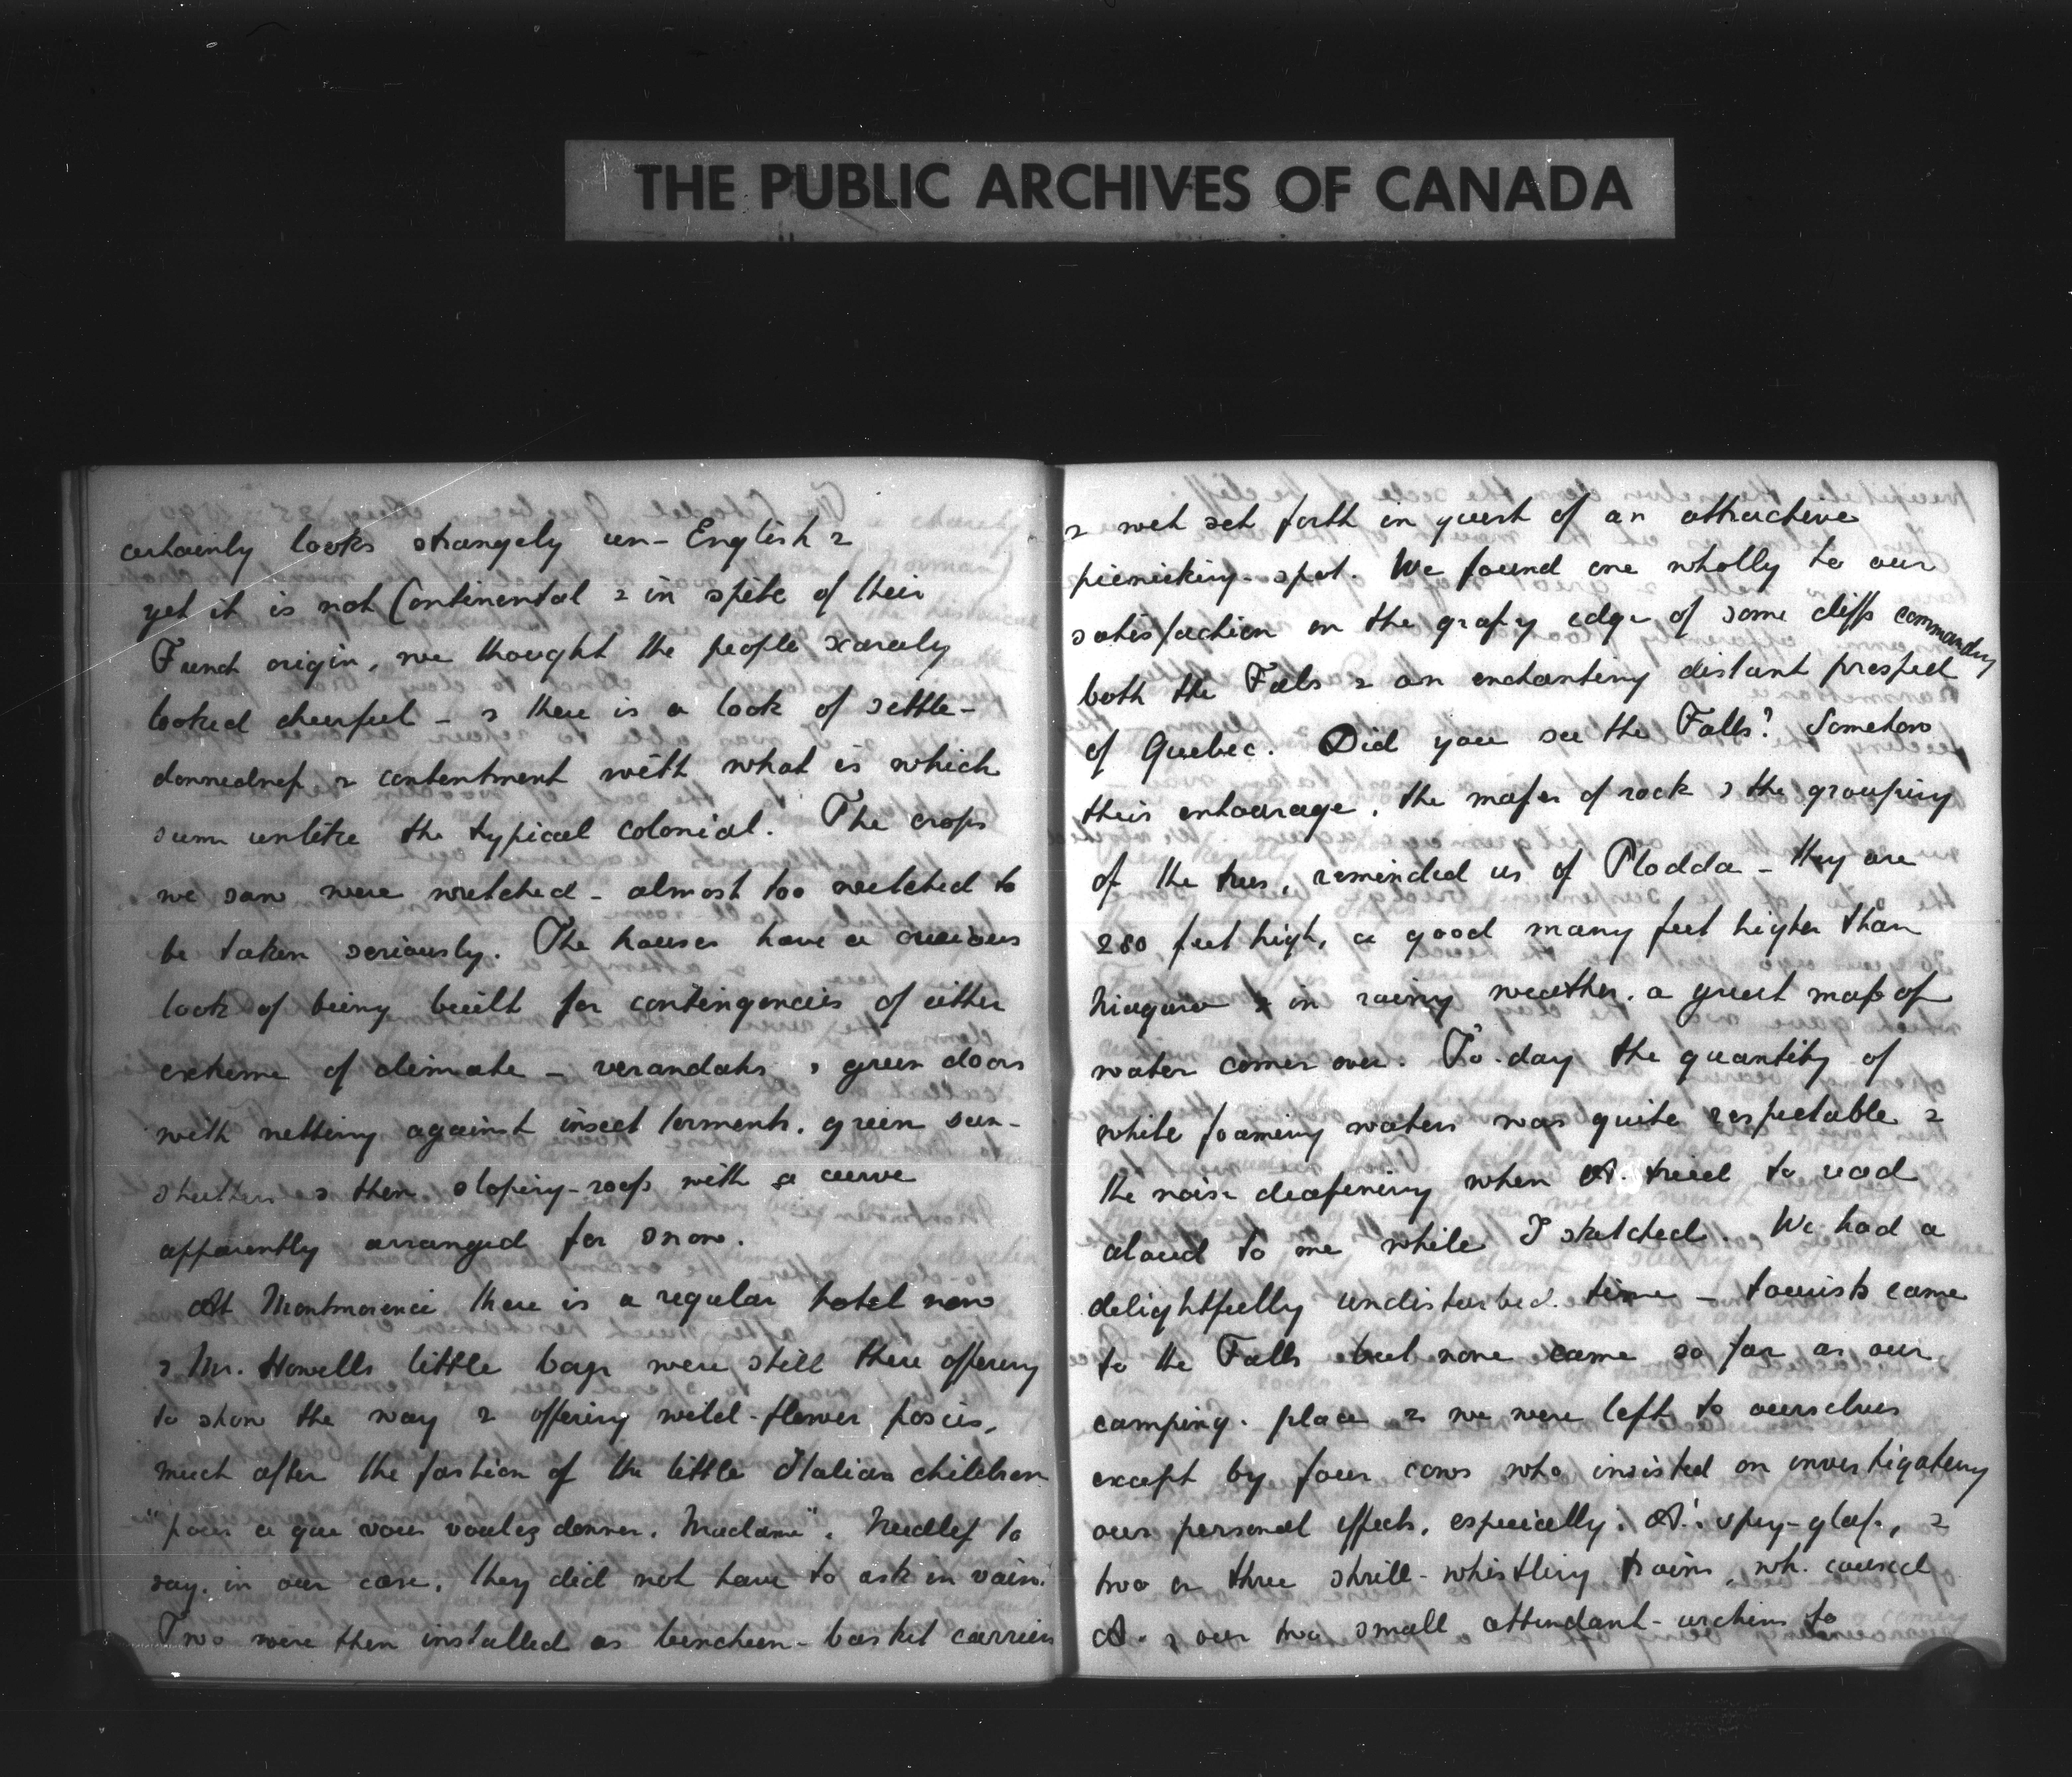 THE PUBLIC ARCHIVES OF CANADA
certainly looks strangely un-English &
yet it is not Continental & in spite of their
French origin, we thought the people scarcely
looked cheerful - & there is a look of settle-
downedness & contentment with what is which
seem unlike the typical colonial. The crops
we saw were wretched - almost too wretched to
be taken seriously. The houses have a curious
look of being built for contingencies of either
extreme of climate - verandahs & green doors
with netting against insect torments, green sun-
shutters & then sloping-roofs with a curve
apparently arranged for snow.
At Montmorenci there is a regular hotel now
& Mr. Howells little boys were still there offering
to show the way & offering wild-flower posies,
much after the fashion of the little Italian children
"pour ce que vous voulez donner, Madame". Needless to
say, in our case, they did not have to ask in vain.
Two were then installed as luncheon-basket carriers
& we set forth in quest of an attractive
picnicking-spot. We found one wholly to our
satisfaction on the grassy edge of some cliffs commanding
both the Falls & an enchanting distant prospect
of Quebec. Did you see the Falls? Somehow
their entourage, the masses of rock & the grouping
of the trees, reminded us of Plodda - they are
280 feet high, a good many feet higher than
Niagara & in rainy weather, a great mass of
water comes over. To-day the quantity of
white foaming waters was quite respectable &
the noise deafening when A. tried to read
aloud to me while I sketched. We had a
delightfully undisturbed time - tourists came
to the Falls but none came so far as our
camping-place & we were left to ourselves
except by four cows who insisted on investigating
our personal effects, especially A's spy-glass, &
two or three shrill-whistling trains, wh. caused
A. & our two small attendant-urchins to